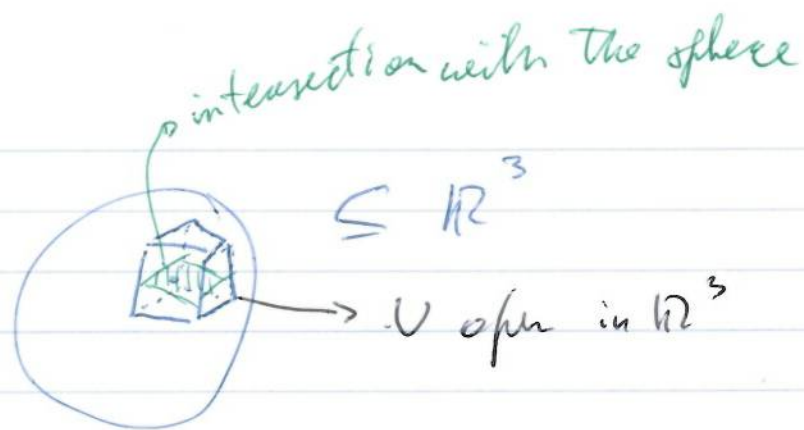 intersection with the sphere
⊆ ℝ³
U open in ℝ³